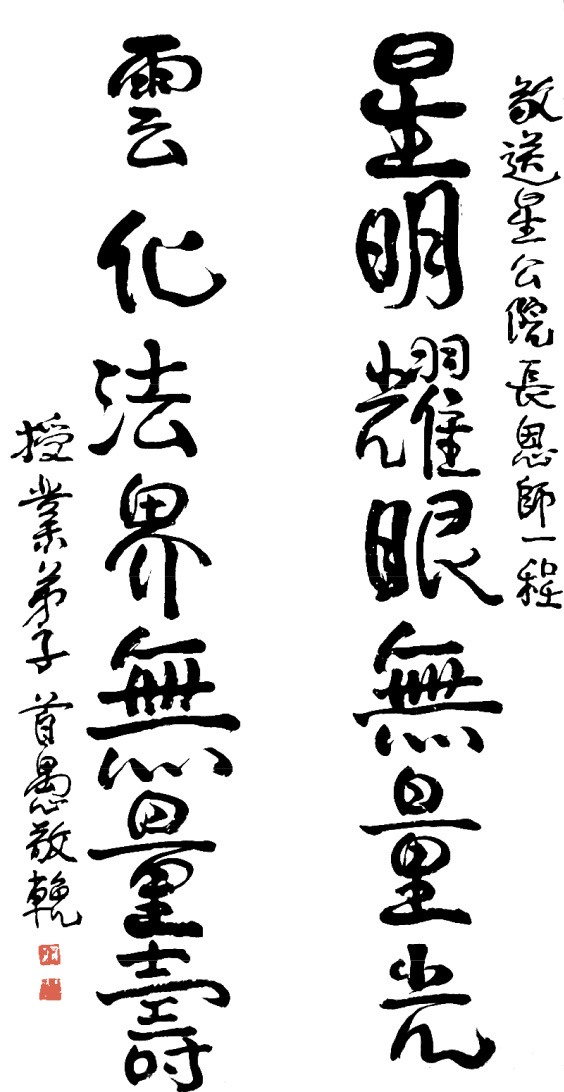 敬送星公院長恩師一程
星明耀眼無量光
雲化法界無量壽
授業弟子首愚敬輓